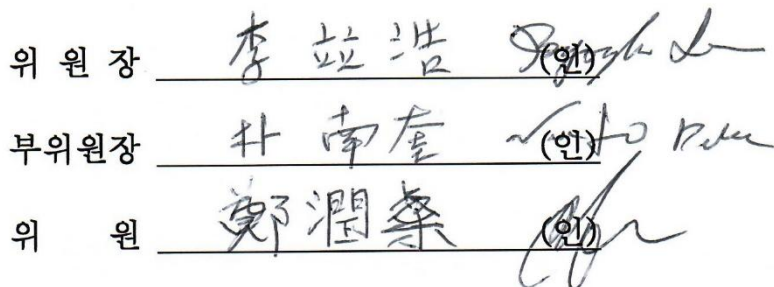 위 원 장 李 竝 浩 (인)
부위원장 朴 南 奎 (인)
위 원 鄭 潤 燦 (인)